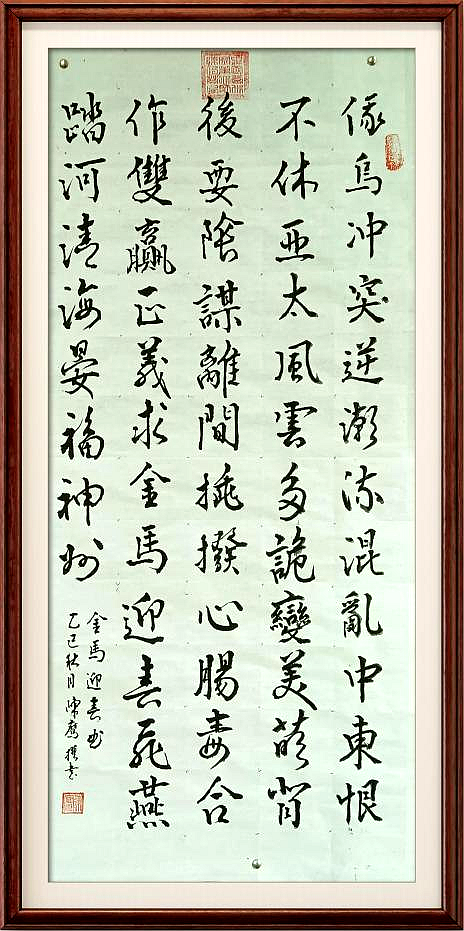 俄烏冲突逆潮流混亂中東恨
不休亞太風雲多詭變美菲背
後耍陰謀離間挑撥心腸毒合
作雙贏正義求金馬迎春飛燕
踏河清海晏福神州
金馬迎春
乙巳秋月陳鷹撰書